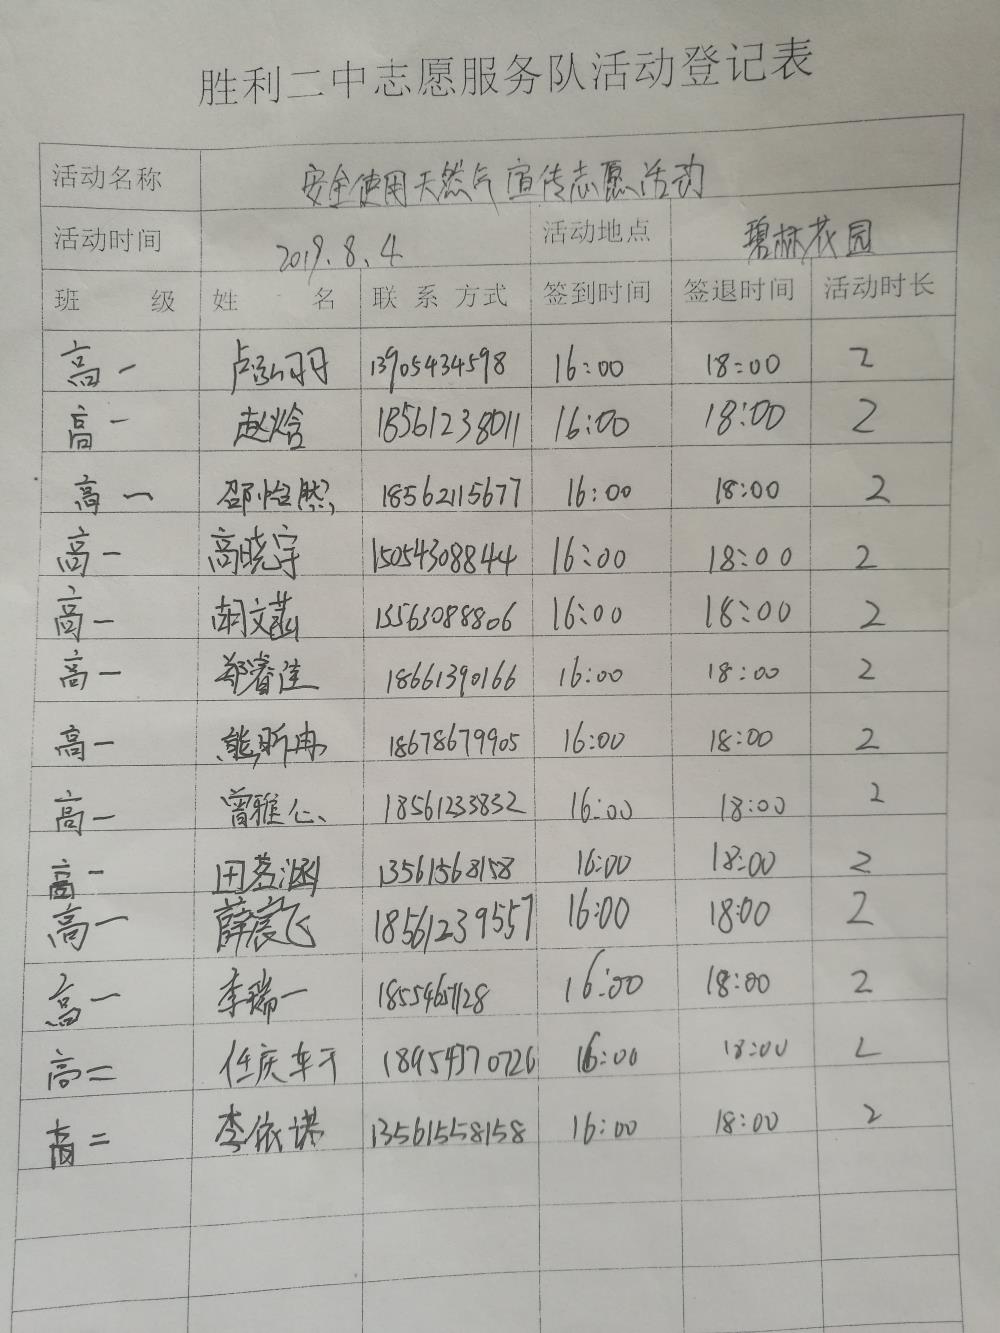 胜利二中志愿服务队活动登记表
活动名称 安全使用天然气宣传志愿活动
活动时间 2019.8.4 活动地点 碧林花园
班 级 姓 名 联系方式 签到时间 签退时间 活动时长
高一 卢泓羽丹 13905434598 16:00 18:00 2
高一 赵焓 18561238011 16:00 18:00 2
高一 邵怡然 18562115677 16:00 18:00 2
高一 高晓宇 15054308844 16:00 18:00 2
高一 胡文菡 15563088806 16:00 18:00 2
高一 郑睿佳 18661390166 16:00 18:00 2
高一 熊昕冉 18678679905 16:00 18:00 2
高一 曾雅心 18561233832 16:00 18:00 2
高一 田茗涵 13561568158 16:00 18:00 2
高一 薛宸飞 18561239557 16:00 18:00 2
高一 李瑞一 16:00 18:00 2
高二 任庆 18954370726 16:00 18:00 2
高二 李依诺 13561558158 16:00 18:00 2